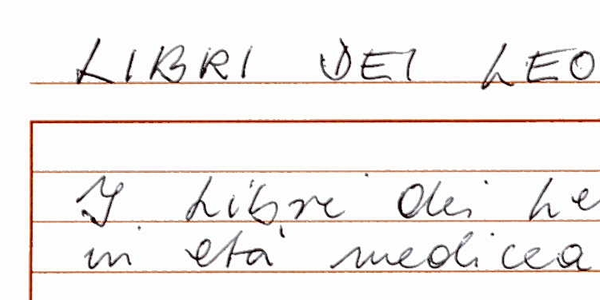 LIBRI DEI LEO
I Libri dei Le
in età medicea